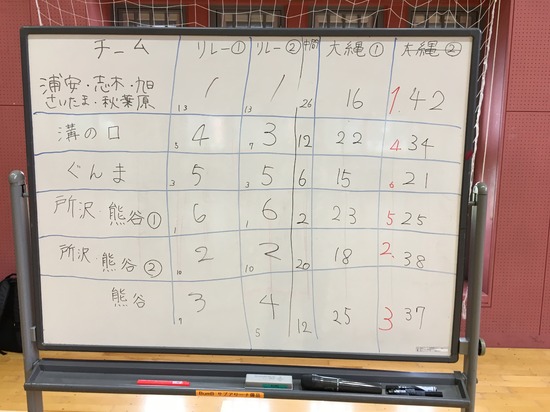 チーム リレー① リレー② 中間 大縄① 大縄②
浦安・志木・旭
さいたま・秋葉原 13 1 13 1 26 16 1. 42
溝の口 5 4 7 3 12 22 4. 34
ぐんま 3 5 3 5 6 15 6 21
所沢・熊谷① 1 6 1 6 2 23 5 25
所沢・熊谷② 10 2 10 2 20 18 2. 38
熊谷 7 3 5 4 12 25 3 37